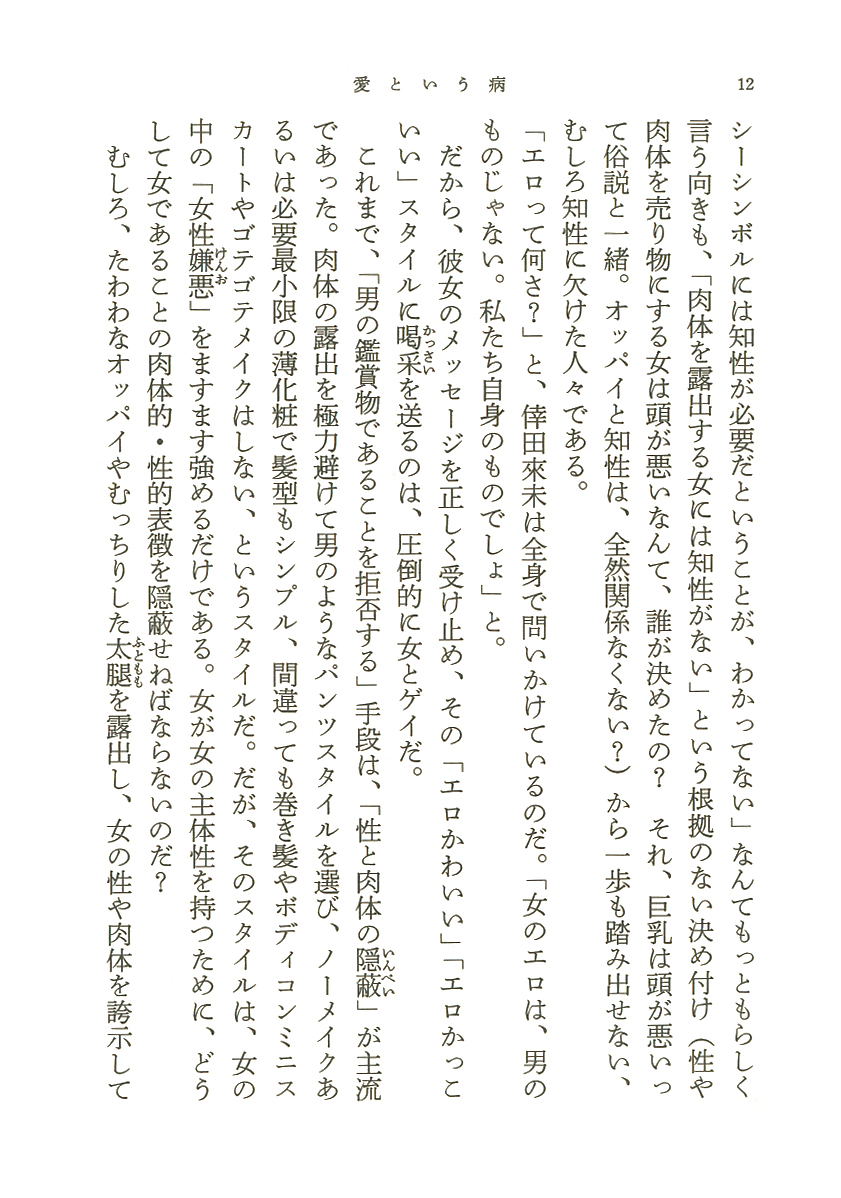 愛という病
12
シーシンボルには知性が必要だということが、わかってない」なんてもっともらしく
言う向きも、「肉体を露出する女には知性がない」という根拠のない決め付け（性や
肉体を売り物にする女は頭が悪いなんて、誰が決めたの？　それ、巨乳は頭が悪いっ
て俗説と一緒。オッパイと知性は、全然関係なくない？）から一歩も踏み出せない、
むしろ知性に欠けた人々である。
「エロって何さ？」と、倖田來未は全身で問いかけているのだ。「女のエロは、男の
ものじゃない。私たち自身のものでしょ」と。
だから、彼女のメッセージを正しく受け止め、その「エロかわいい」「エロかっこ
いい」スタイルに喝采かっさいを送るのは、圧倒的に女とゲイだ。
これまで、「男の鑑賞物であることを拒否する」手段は、「性と肉体の隠蔽いんぺい」が主流
であった。肉体の露出を極力避けて男のようなパンツスタイルを選び、ノーメイクあ
るいは必要最小限の薄化粧で髪型もシンプル、間違っても巻き髪やボディコンミニス
カートやゴテゴテメイクはしない、というスタイルだ。だが、そのスタイルは、女の
中の「女性嫌悪けんお」をますます強めるだけである。女が女の主体性を持つために、どう
して女であることの肉体的・性的表徴を隠蔽せねばならないのだ？
むしろ、たわわなオッパイやむっちりした太腿ふとももを露出し、女の性や肉体を誇示して